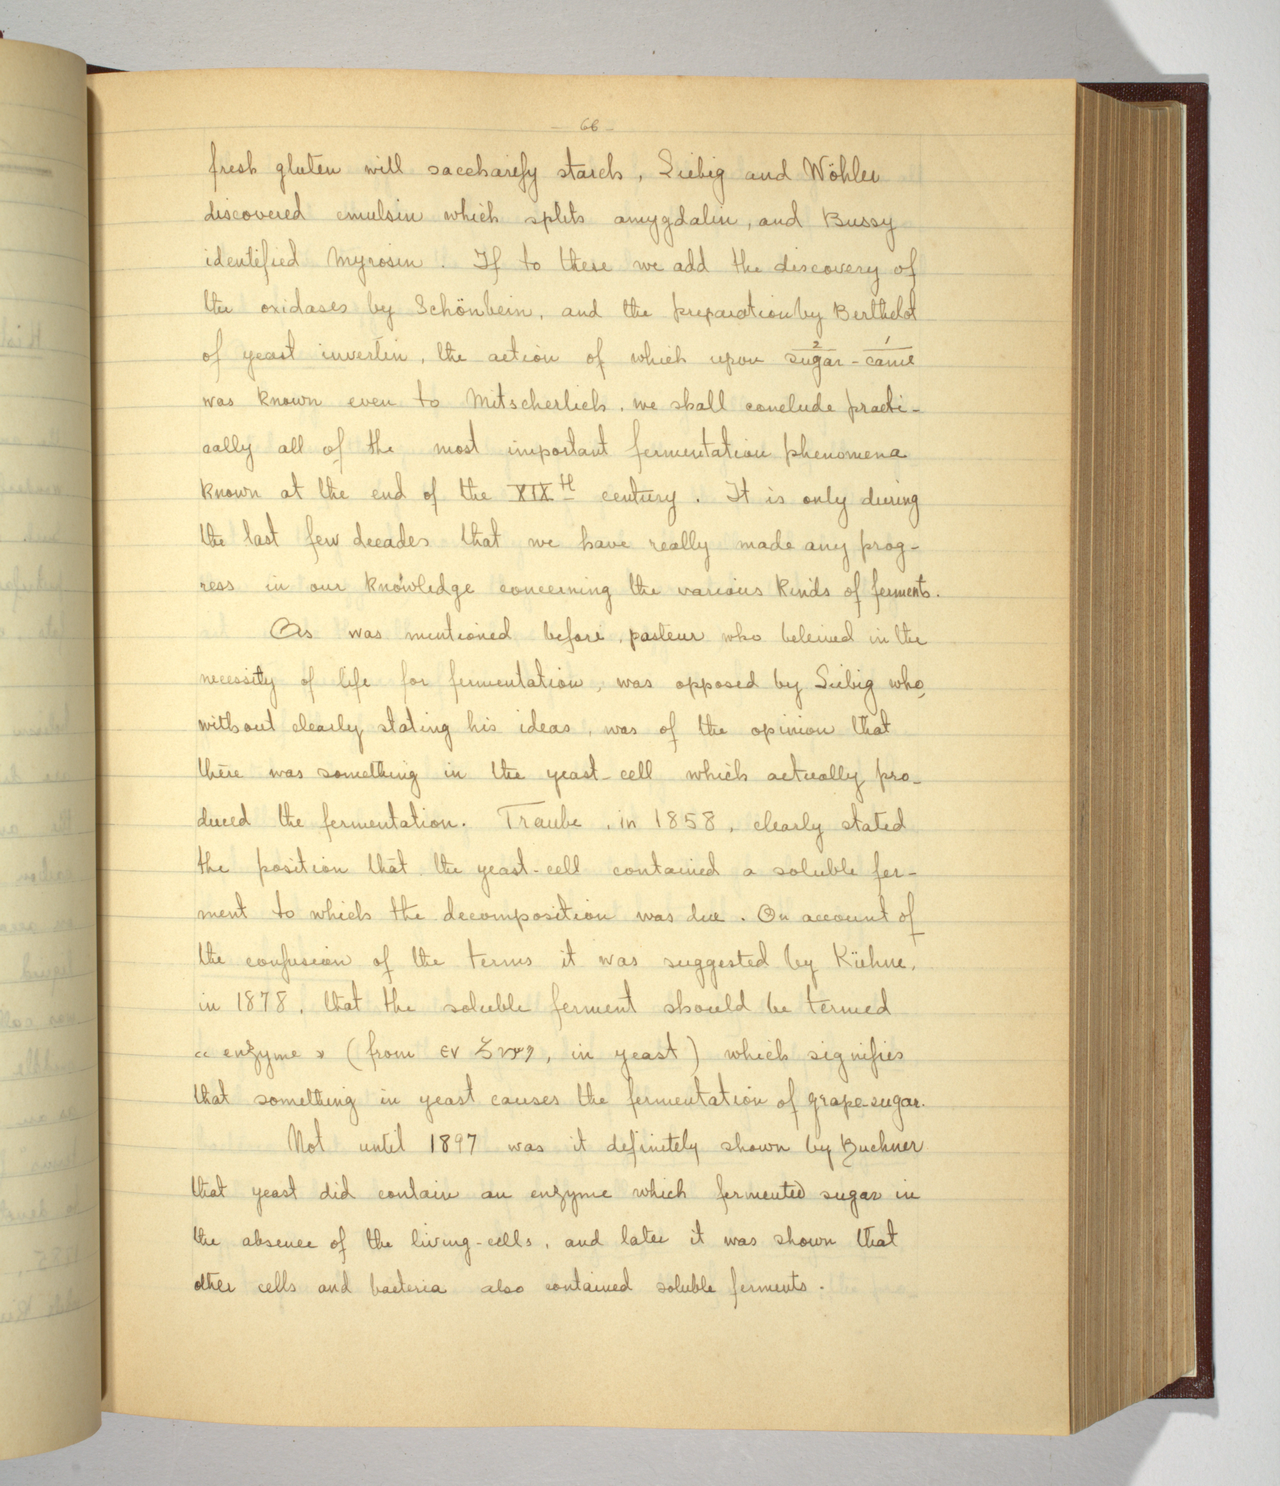 - 66 -
fresh gluten will saccharify starch, Liebig and Wöhler
discovered emulsin which splits amygdalin, and Bussy
identified Myrosin. If to these we add the discovery of
the oxidases by Schönbein, and the preparation by Berthelot
of yeast invertin, the action of which upon sugar-cane
2 1
was known even to Mitscherlich, we shall conclude practi-
cally all of the most important fermentation phenomena
known at the end of the XIXth century. It is only during
the last few decades that we have really made any prog-
ress in our knowledge concerning the various kinds of ferments.
As was mentioned before, pasteur who beleived in the
necessity of life for fermentation, was opposed by Liebig who,
without clearly stating his ideas, was of the opinion that
there was something in the yeast-cell which actually pro-
duced the fermentation. Traube, in 1858, clearly stated
the position that the yeast-cell contained a soluble fer-
ment to which the decomposition was due. On account of
the confusion of the terms it was suggested by Kühne,
in 1878, that the soluble ferment should be termed
« enzyme » (from εν ζυμη, in yeast) which signifies
that something in yeast causes the fermentation of grape-sugar.
Not until 1897 was it definetely shown by Buchner
that yeast did contain an enzyme which fermented sugar in
the absence of the living-cells, and later it was shown that
other cells and bacteria also contained soluble ferments.